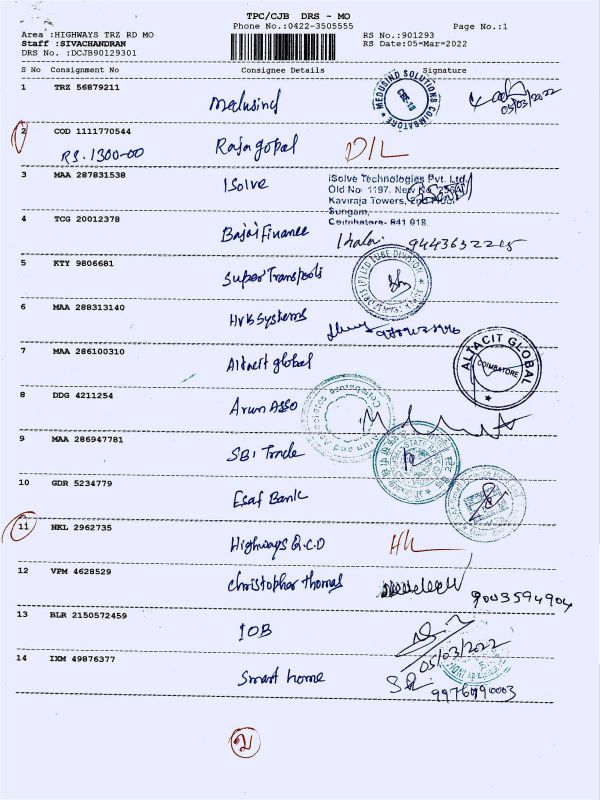 TPC/CJB DRS - MO
Phone No.:0422-3505555 Page No.:1
Area :HIGHWAYS TRZ RD MO RS No.:901293
Staff :SIVACHANDRAN RS Date:05=Mar=2022
DRS No. :DCJB90129301
S No Consignment No Consignee Details Signature
1 TRZ 56879211 Medusind MEDUSIND SOLUTIONS COIMBATORE CBE-18
05/03/2022
2 COD 1111770544 Rajagopal D/L
RS. 1300-00
3 MAA 287831538 ISolve iSolve Technologies Pvt. Ltd.
Old No: 1197, New No
Kaviraja Towers, 2nd Floor
Sungam,
Coimbatore- 641 018.
4 TCG 20012378 Bajaj Finance 9443632215
5 KTY 9806681 Super Transports
6 MAA 288313140 HVB Systems
7 MAA 286100310 Altacit global ALTACIT GLOBAL COIMBATORE
8 DDG 4211254 Arun Asso
9 MAA 286947781 SBI Trade
10 GDR 5234779 Esaf Bank
11 NKL 2962735 Highways Q.C.D
12 VPM 4628529 Christopher Thomas 9003594904
13 BLR 2150572459 IOB
05/03/2022
14 IXM 49876377 Smart home